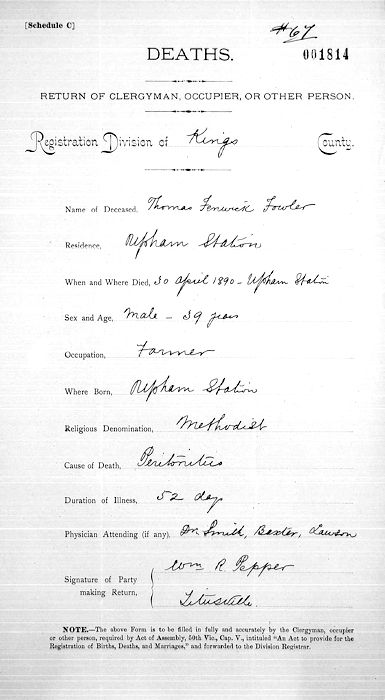 #67
[Schedule C]
DEATHS.
001814
RETURN OF CLERGYMAN, OCCUPIER, OR OTHER PERSON.
Registration Division of Kings County.
Name of Deceased, Thomas Fenwick Fowler
Residence, Upham Station
When and Where Died, 30 April 1890 - Upham Station
Sex and Age, Male - 39 years
Occupation, Farmer
Where Born, Upham Station
Religious Denomination, Methodist
Cause of Death, Peritonitis
Duration of Illness, 52 days
Physician Attending (if any), Dr. Smith, Baxter, Lawson
Wm R. Pepper
Signature of Party
making Return, Titusville.
NOTE.—The above Form is to be filled in fully and accurately by the Clergyman, occupier
or other person, required by Act of Assembly, 50th Vic., Cap. V., intituled "An Act to provide for the
Registration of Births, Deaths, and Marriages," and forwarded to the Division Registrar.